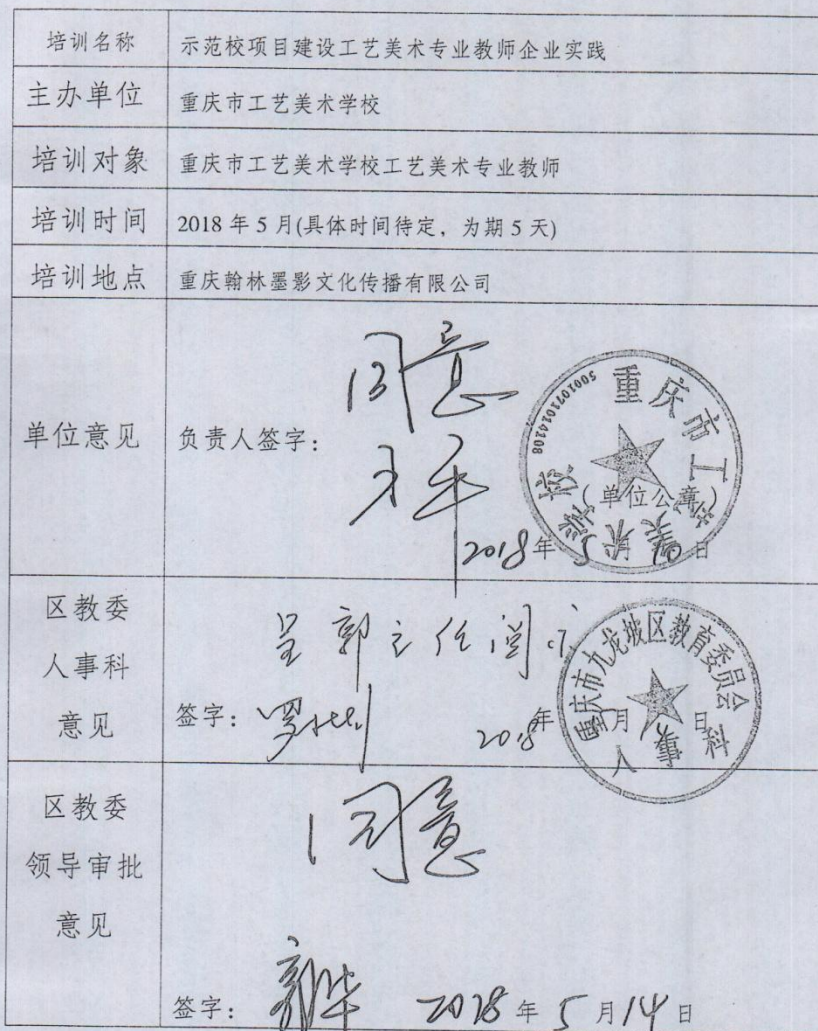 培训名称 示范校项目建设工艺美术专业教师企业实践
主办单位 重庆市工艺美术学校
培训对象 重庆市工艺美术学校工艺美术专业教师
培训时间 2018年5月(具体时间待定，为期5天)
培训地点 重庆翰林墨影文化传播有限公司
同意
单位意见 负责人签字：
重庆市工艺美术学校
5001071014108
(单位公章)
2018年5月10日
区教委
人事科
意见
呈郭主任阅示
签字：
2018年 月 日
重庆市九龙坡区教育委员会
人事科
区教委
领导审批
意见
同意
签字： 2018年5月14日